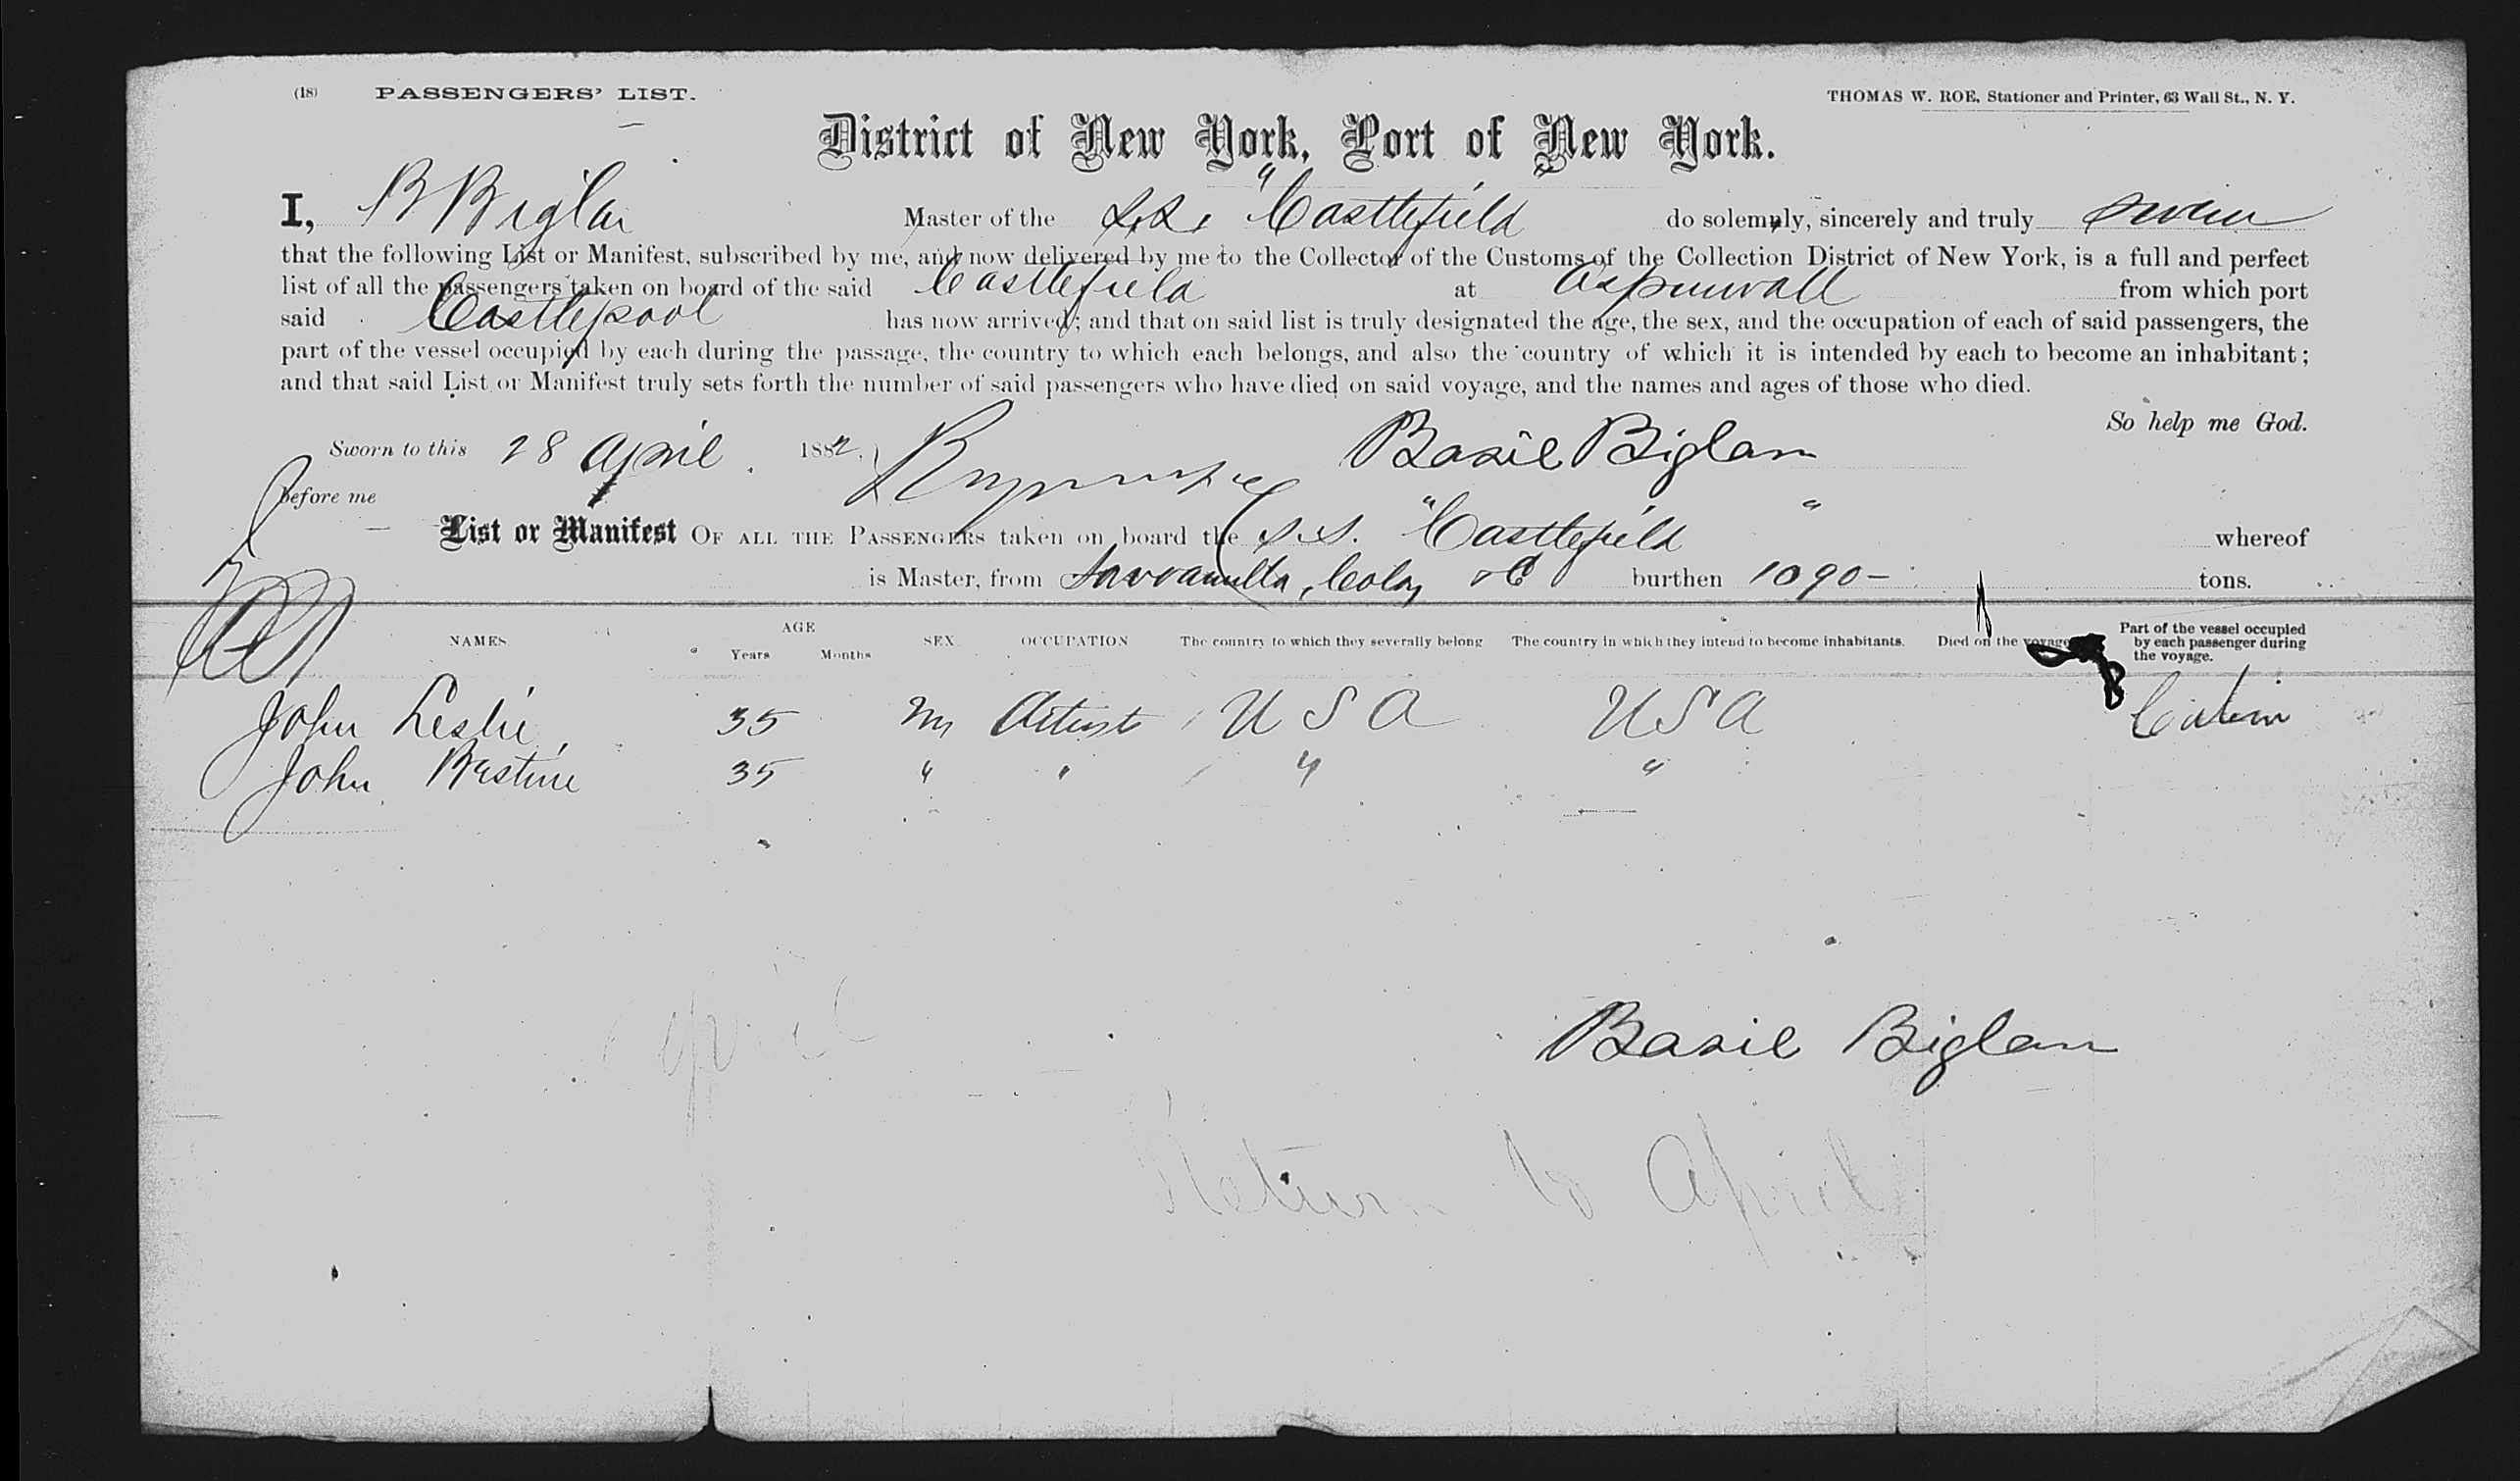 (18) PASSENGERS' LIST. THOMAS W. ROE, Stationer and Printer, 63 Wall St., N. Y.
District of New York, Port of New York.
I, B Biglan Master of the S.S. "Castlefield" do solemnly, sincerely and truly swear
that the following List or Manifest, subscribed by me, and now delivered by me to the Collector of the Customs of the Collection District of New York, is a full and perfect
list of all the passengers taken on board of the said Castlefield at Aspinwall from which port
said Castlepool has now arrived; and that on said list is truly designated the age, the sex, and the occupation of each of said passengers, the
part of the vessel occupied by each during the passage, the country to which each belongs, and also the country of which it is intended by each to become an inhabitant;
and that said List or Manifest truly sets forth the number of said passengers who have died on said voyage, and the names and ages of those who died.
So help me God.
Sworn to this 28 April 1882. Basil Biglan
Before me
List or Manifest OF ALL THE PASSENGERS taken on board the S.S. "Castlefield" whereof
is Master, from Savanilla, Colon burthen 1090 - tons.
NAMES AGE Years Months SEX OCCUPATION The country to which they severally belong The country in which they intend to become inhabitants. Died on the voyage Part of the vessel occupied by each passenger during the voyage.
John Leslie 35 M Artist U S A U S A Cabin
John 35 " " " "
April
Basil Biglan
Return to April